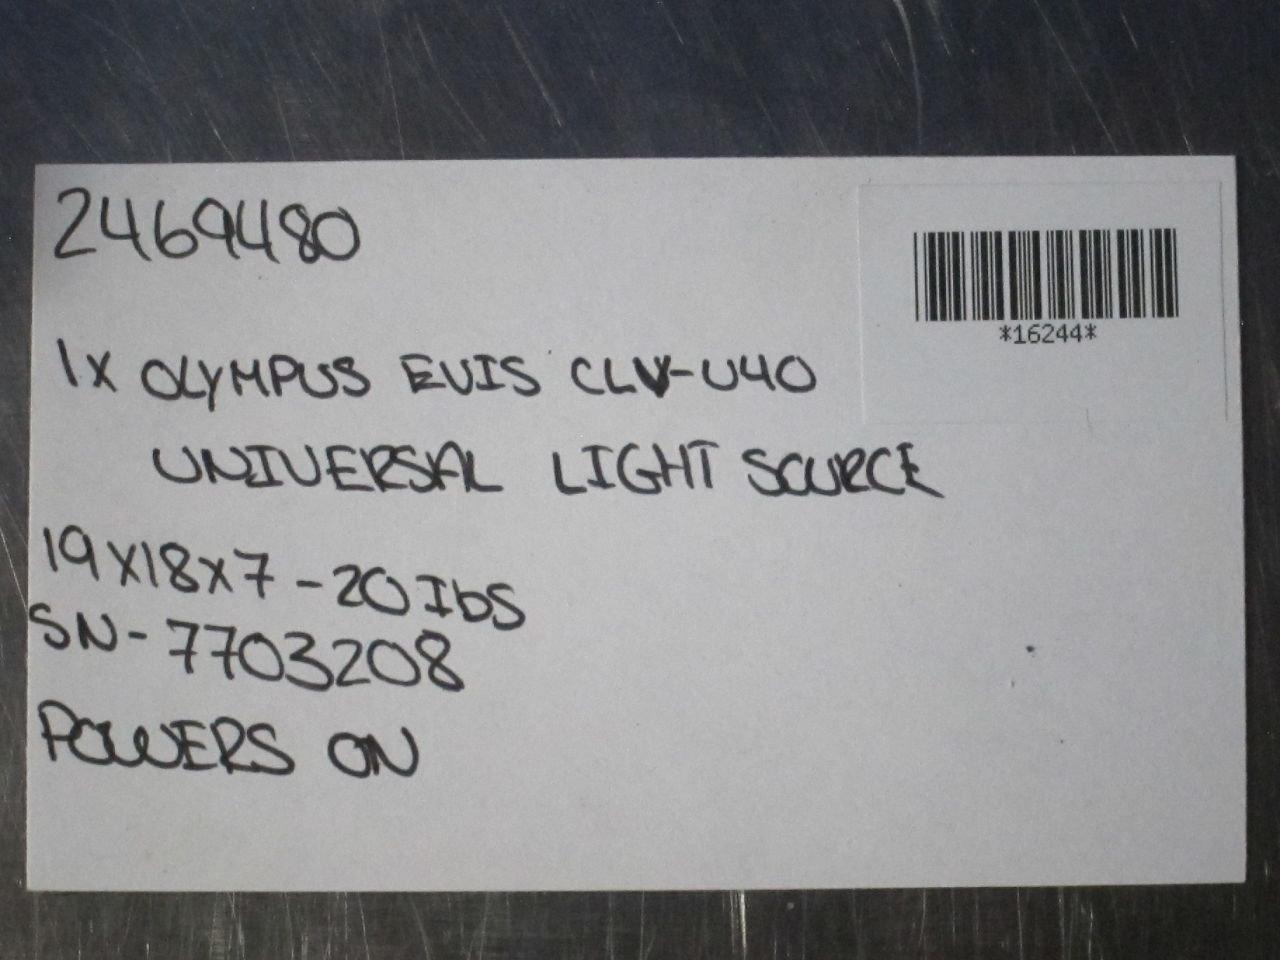 2469480
*16244*
1X OLYMPUS EVIS CLV-U40
UNIVERSAL LIGHT SOURCE
19X18X7-20Ibs
SN-7703208
POWERS ON